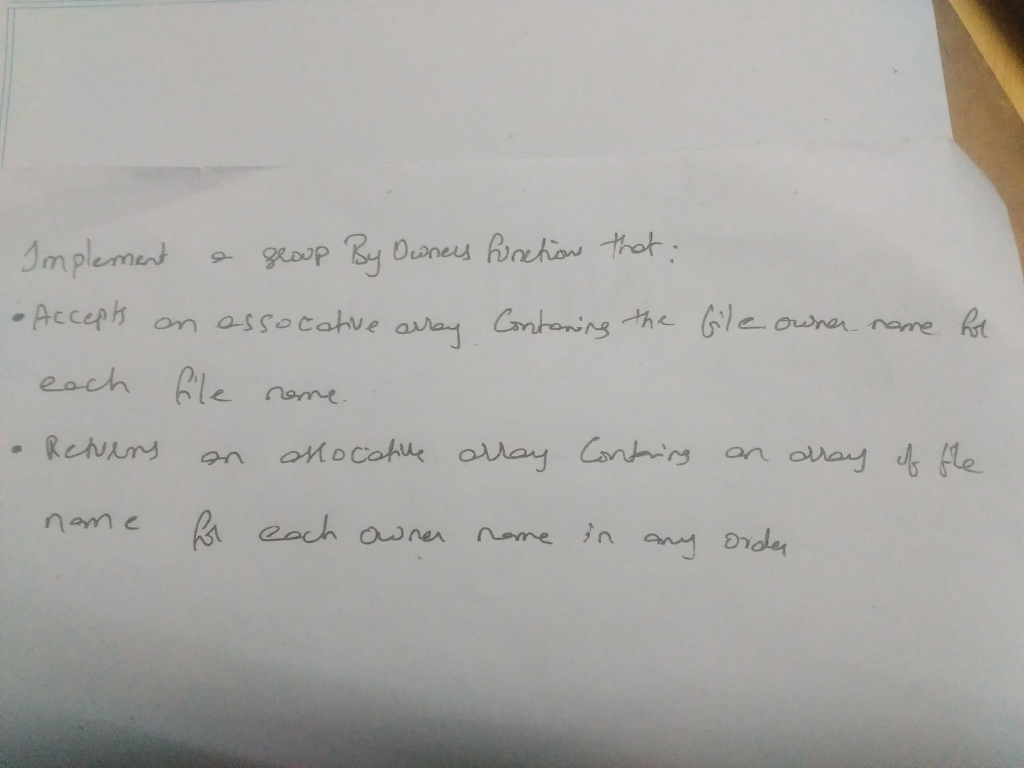 Implement a group By Owners function that:
• Accepts an assocative array Contaning the file owner name for
each file name.
• Returns an assocative array Containing an array of file
name for each owner name in any order